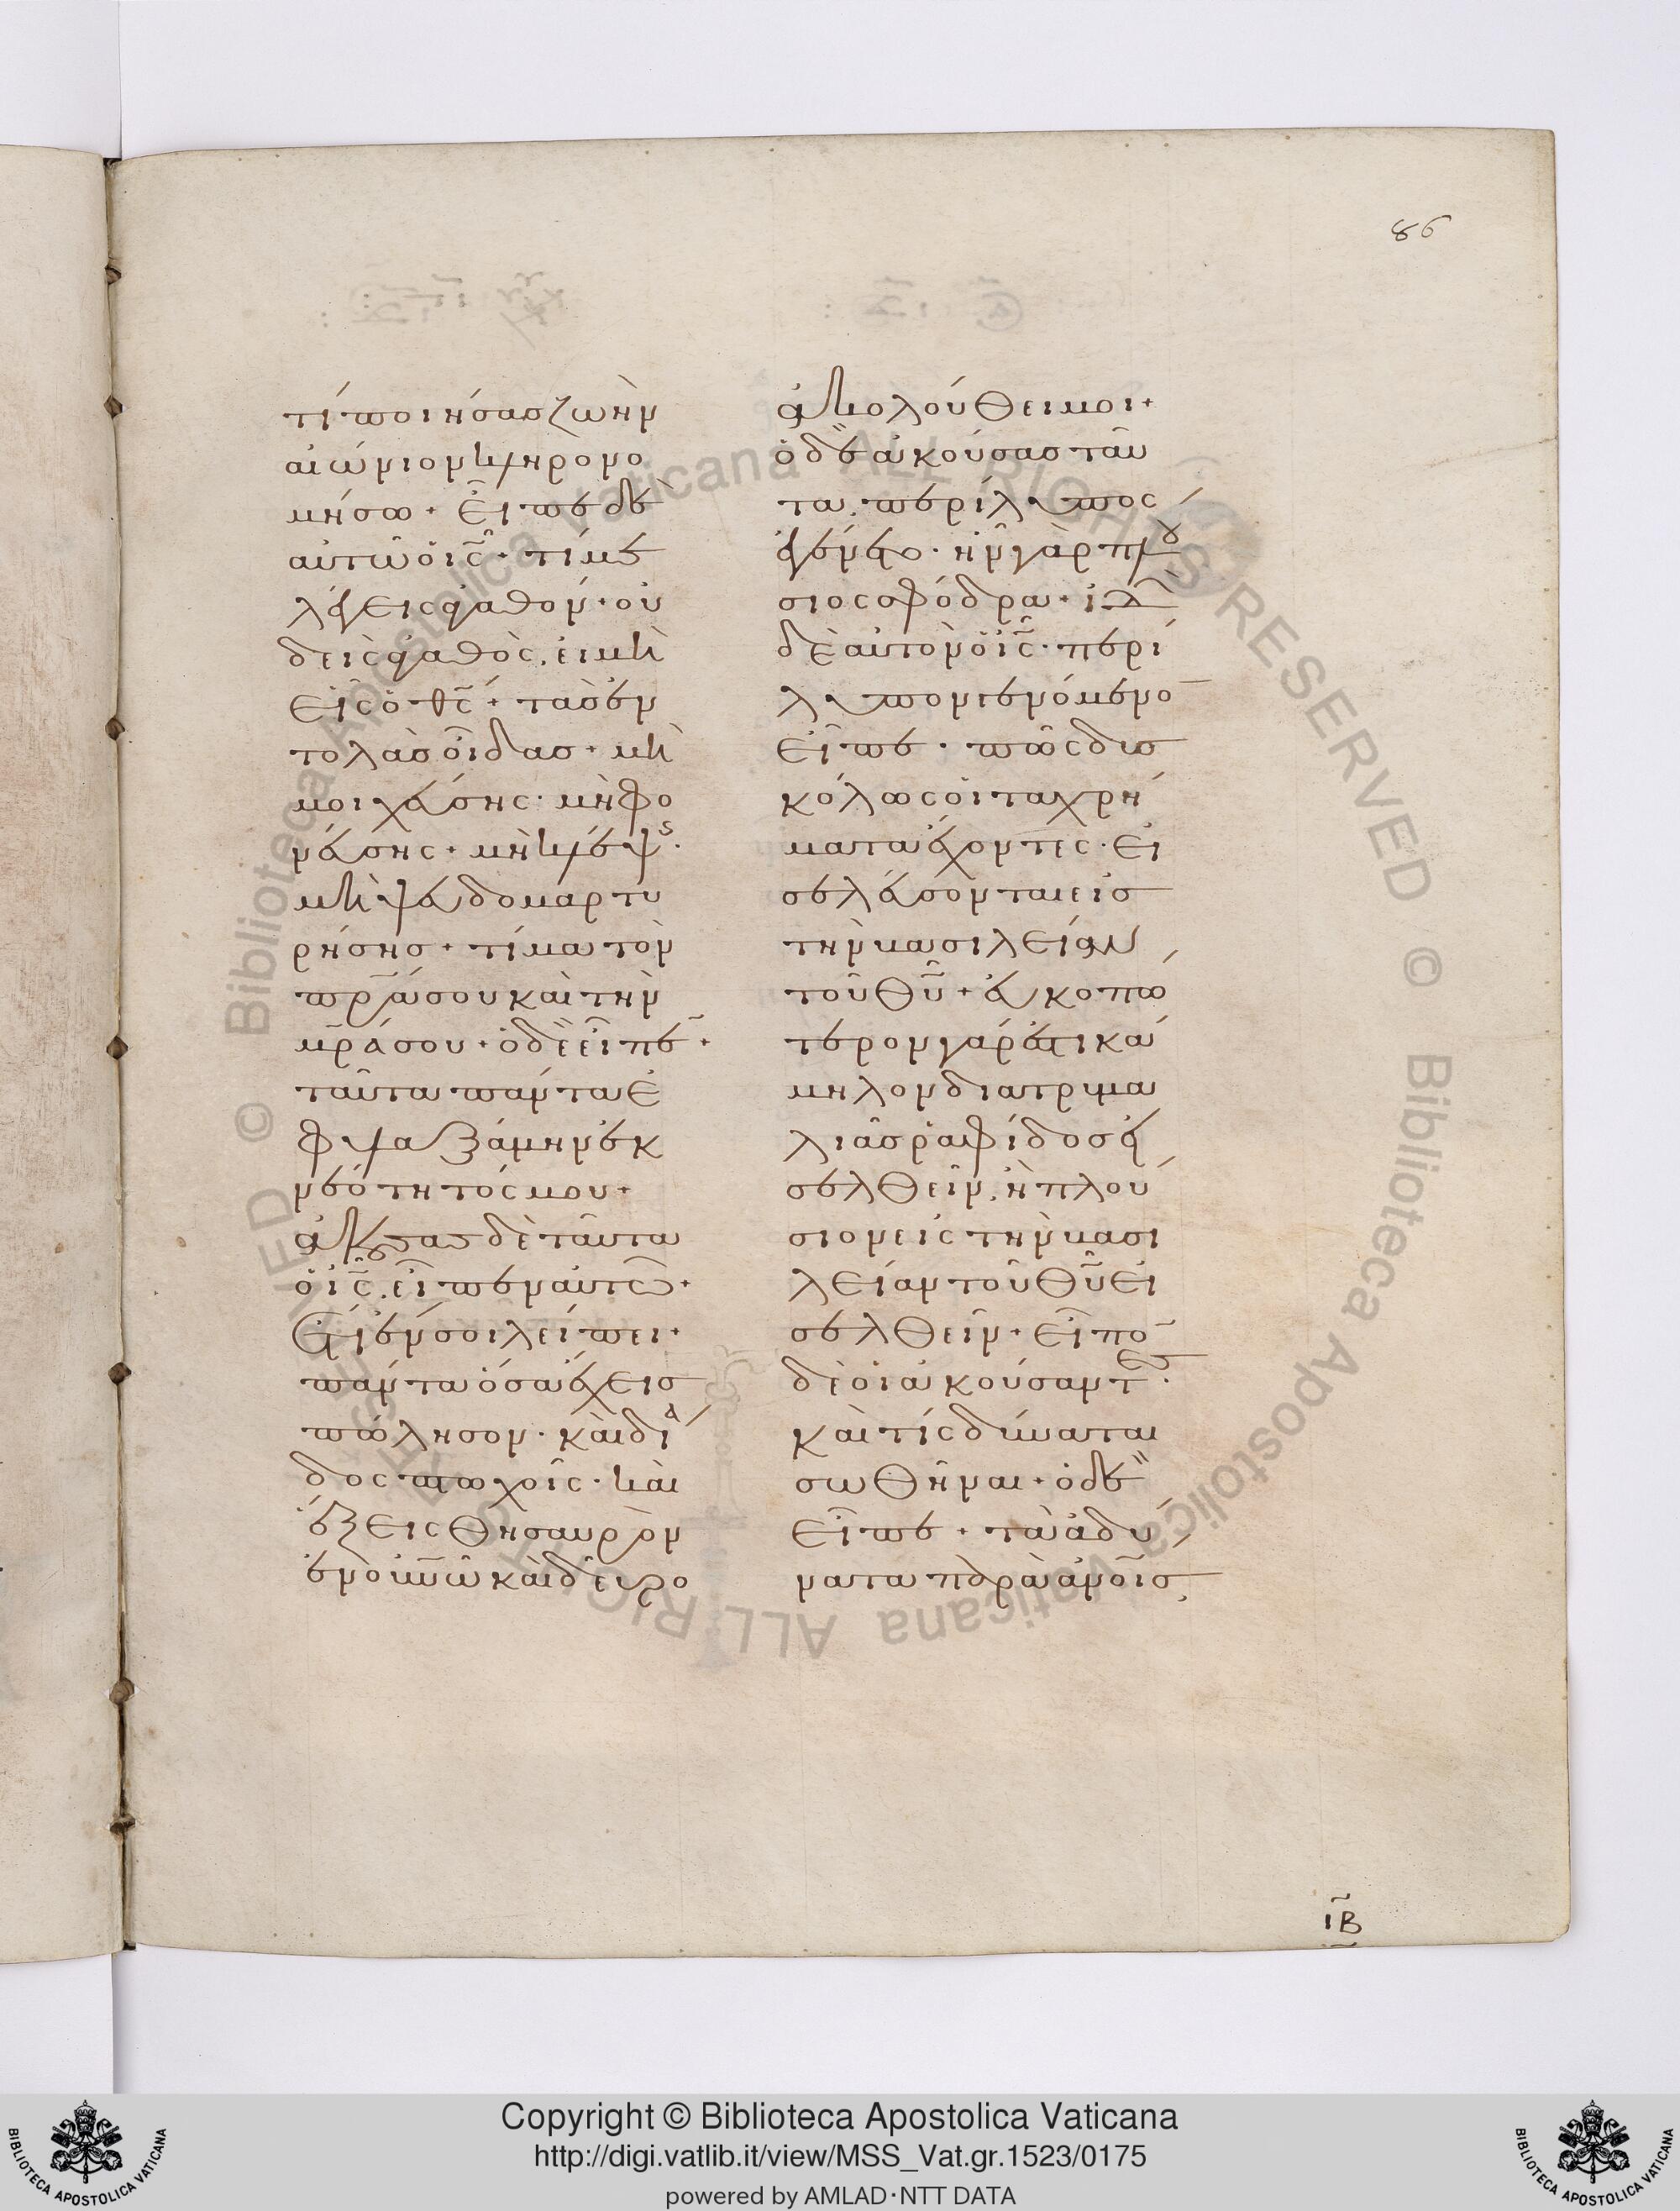 86
τί ποιήσας ζωὴν
αἰώνιον κληρονο
μήσω + εἶπε δὲ
αὐτῶ ὁ ἰς̄ + τί με
λέγεις ἀγαθόν + οὐ
δεὶς ἀγαθὸς. εἰ μὴ
εἷς ὁ θς̄ + τὰς ἐν
τολὰς οἶδας + μὴ
μοιχεύσης · μὴ φο
νεύσης + μὴ κλέψης ·
μὴ ψευδομαρτυ
ρήσης + τίμα τὸν
πρ̄α σου καὶ τὴν
μρ̄α σου + ὁ δὲ εἶπε̄ +
ταῦτα πάντα ἐ
φυλαξάμην ἐκ
νεότητός μου +
ἀκούσας δὲ ταῦτα
ὁ ἰς̄. εἶπεν αὐτῶ +
ἔτι ἕν σοι λείπει +
πάντα ὅσα ἔχεις
πώλησον · καὶ διά
δος πτωχοῖς · καὶ
ἕξεις θησαυρὸν
ἐν οὐν̄ω καὶ δεῦρο
ἀκολούθει μοι +
ὁ δὲ ἀκούσας ταῦ
τα. περίλυπος
ἐγένετο · ἦν γὰρ πλού
σιος σφόδρα + ἰδὼν
δὲ αὐτὸν ὁ ἰς̄ · περί
λυπον γενόμενο̄
εἶπε · πῶς δυσ
κόλως οἱ τὰ χρή
ματα ἔχοντες · εἰ
σελεύσονται εἰς
τὴν βασιλείαν
τοῦ θῡ + εὐκοπώ
τερον γάρ ἐστι κά
μηλον διὰ τρυμα
λιᾶς ῥαφίδος εἰ
σελθεῖν. ἢ πλού
σιον εἰς τὴν βασι
λείαν τοῦ θῡ εἰ
σελθεῖν + εἶπο̄
δὲ οἱ ἀκούσαντες ·
καὶ τίς δύναται
σωθῆναι + ὁ δὲ
εἶπε + τὰ ἀδύ
νατα παρὰ ἀνοῖς
ιβ̄
Copyright © Biblioteca Apostolica Vaticana
http://digi.vatlib.it/view/MSS_Vat.gr.1523/0175
powered by AMLAD·NTT DATA
BIBLIOTECA APOSTOLICA VATICANA
BIBLIOTECA APOSTOLICA VATICANA
© Biblioteca Apostolica Vaticana ALL RIGHTS RESERVED © Biblioteca Apostolica Vaticana ALL RIGHTS RESERVED